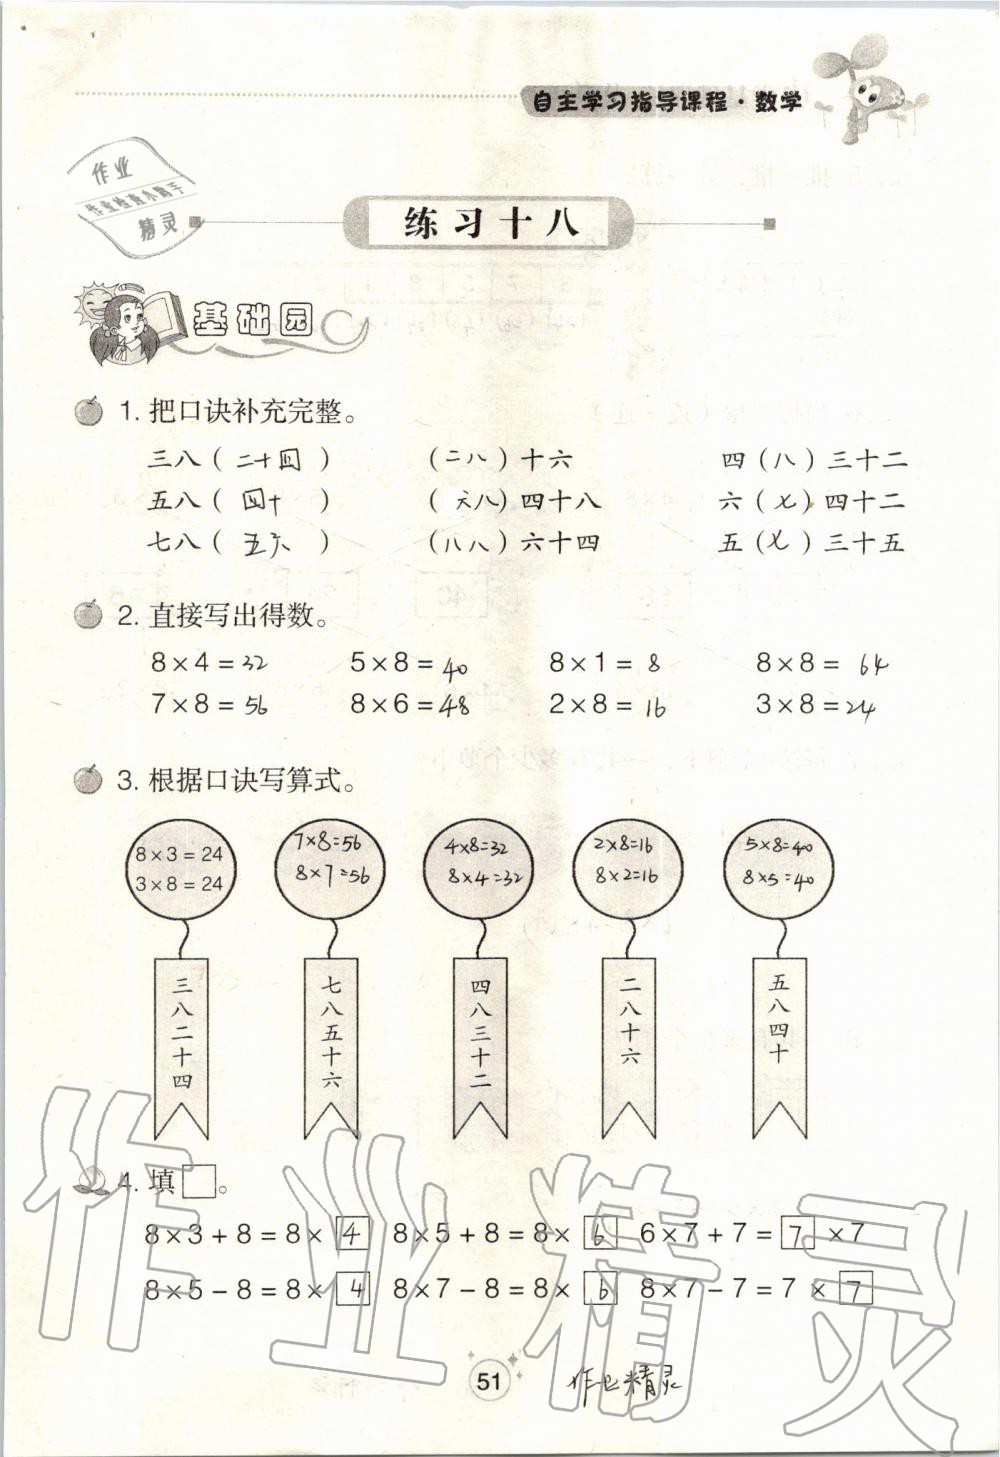 自主学习指导课程·数学
作业
作业检查小帮手
精灵
练习十八
基础园
1. 把口诀补充完整。
三八( 二十四 ) (二八)十六 四(八)三十二
五八( 四十 ) (六八)四十八 六(七)四十二
七八( 五六 ) (八八)六十四 五(七)三十五
2. 直接写出得数。
8×4=32 5×8=40 8×1=8 8×8=64
7×8=56 8×6=48 2×8=16 3×8=24
3. 根据口诀写算式。
8×3=24 7×8=56 4×8=32 2×8=16 5×8=40
3×8=24 8×7=56 8×4=32 8×2=16 8×5=40
三八二十四 七八五十六 四八三十二 二八十六 五八四十
4. 填□。
8×3+8=8×4 8×5+8=8×6 6×7+7=7×7
8×5-8=8×4 8×7-8=8×6 8×7-7=7×7
51
作业精灵
作业精灵